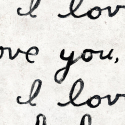 I lov
ove you,
I lov